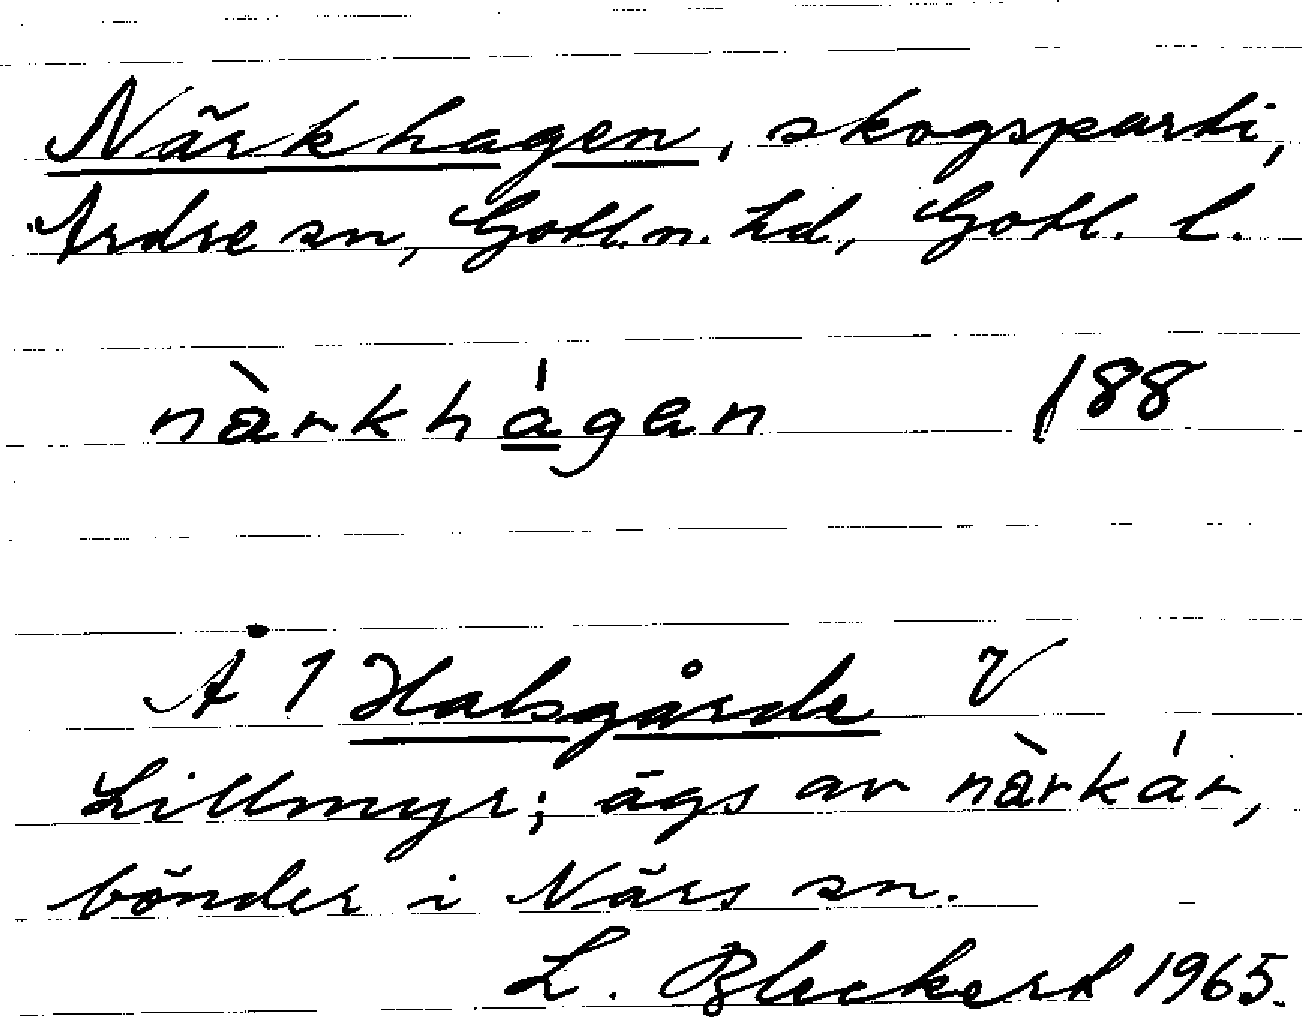 Närkhagen, skogsparti,
Ardre sn, Gotl. n. hd, Gotl. l.
nàrkhágen 188
Å 1 Halsgårde V
Lillmyr; ägs av nàrkár,
bönder i Närs sn.
L. Bleckerd 1965.